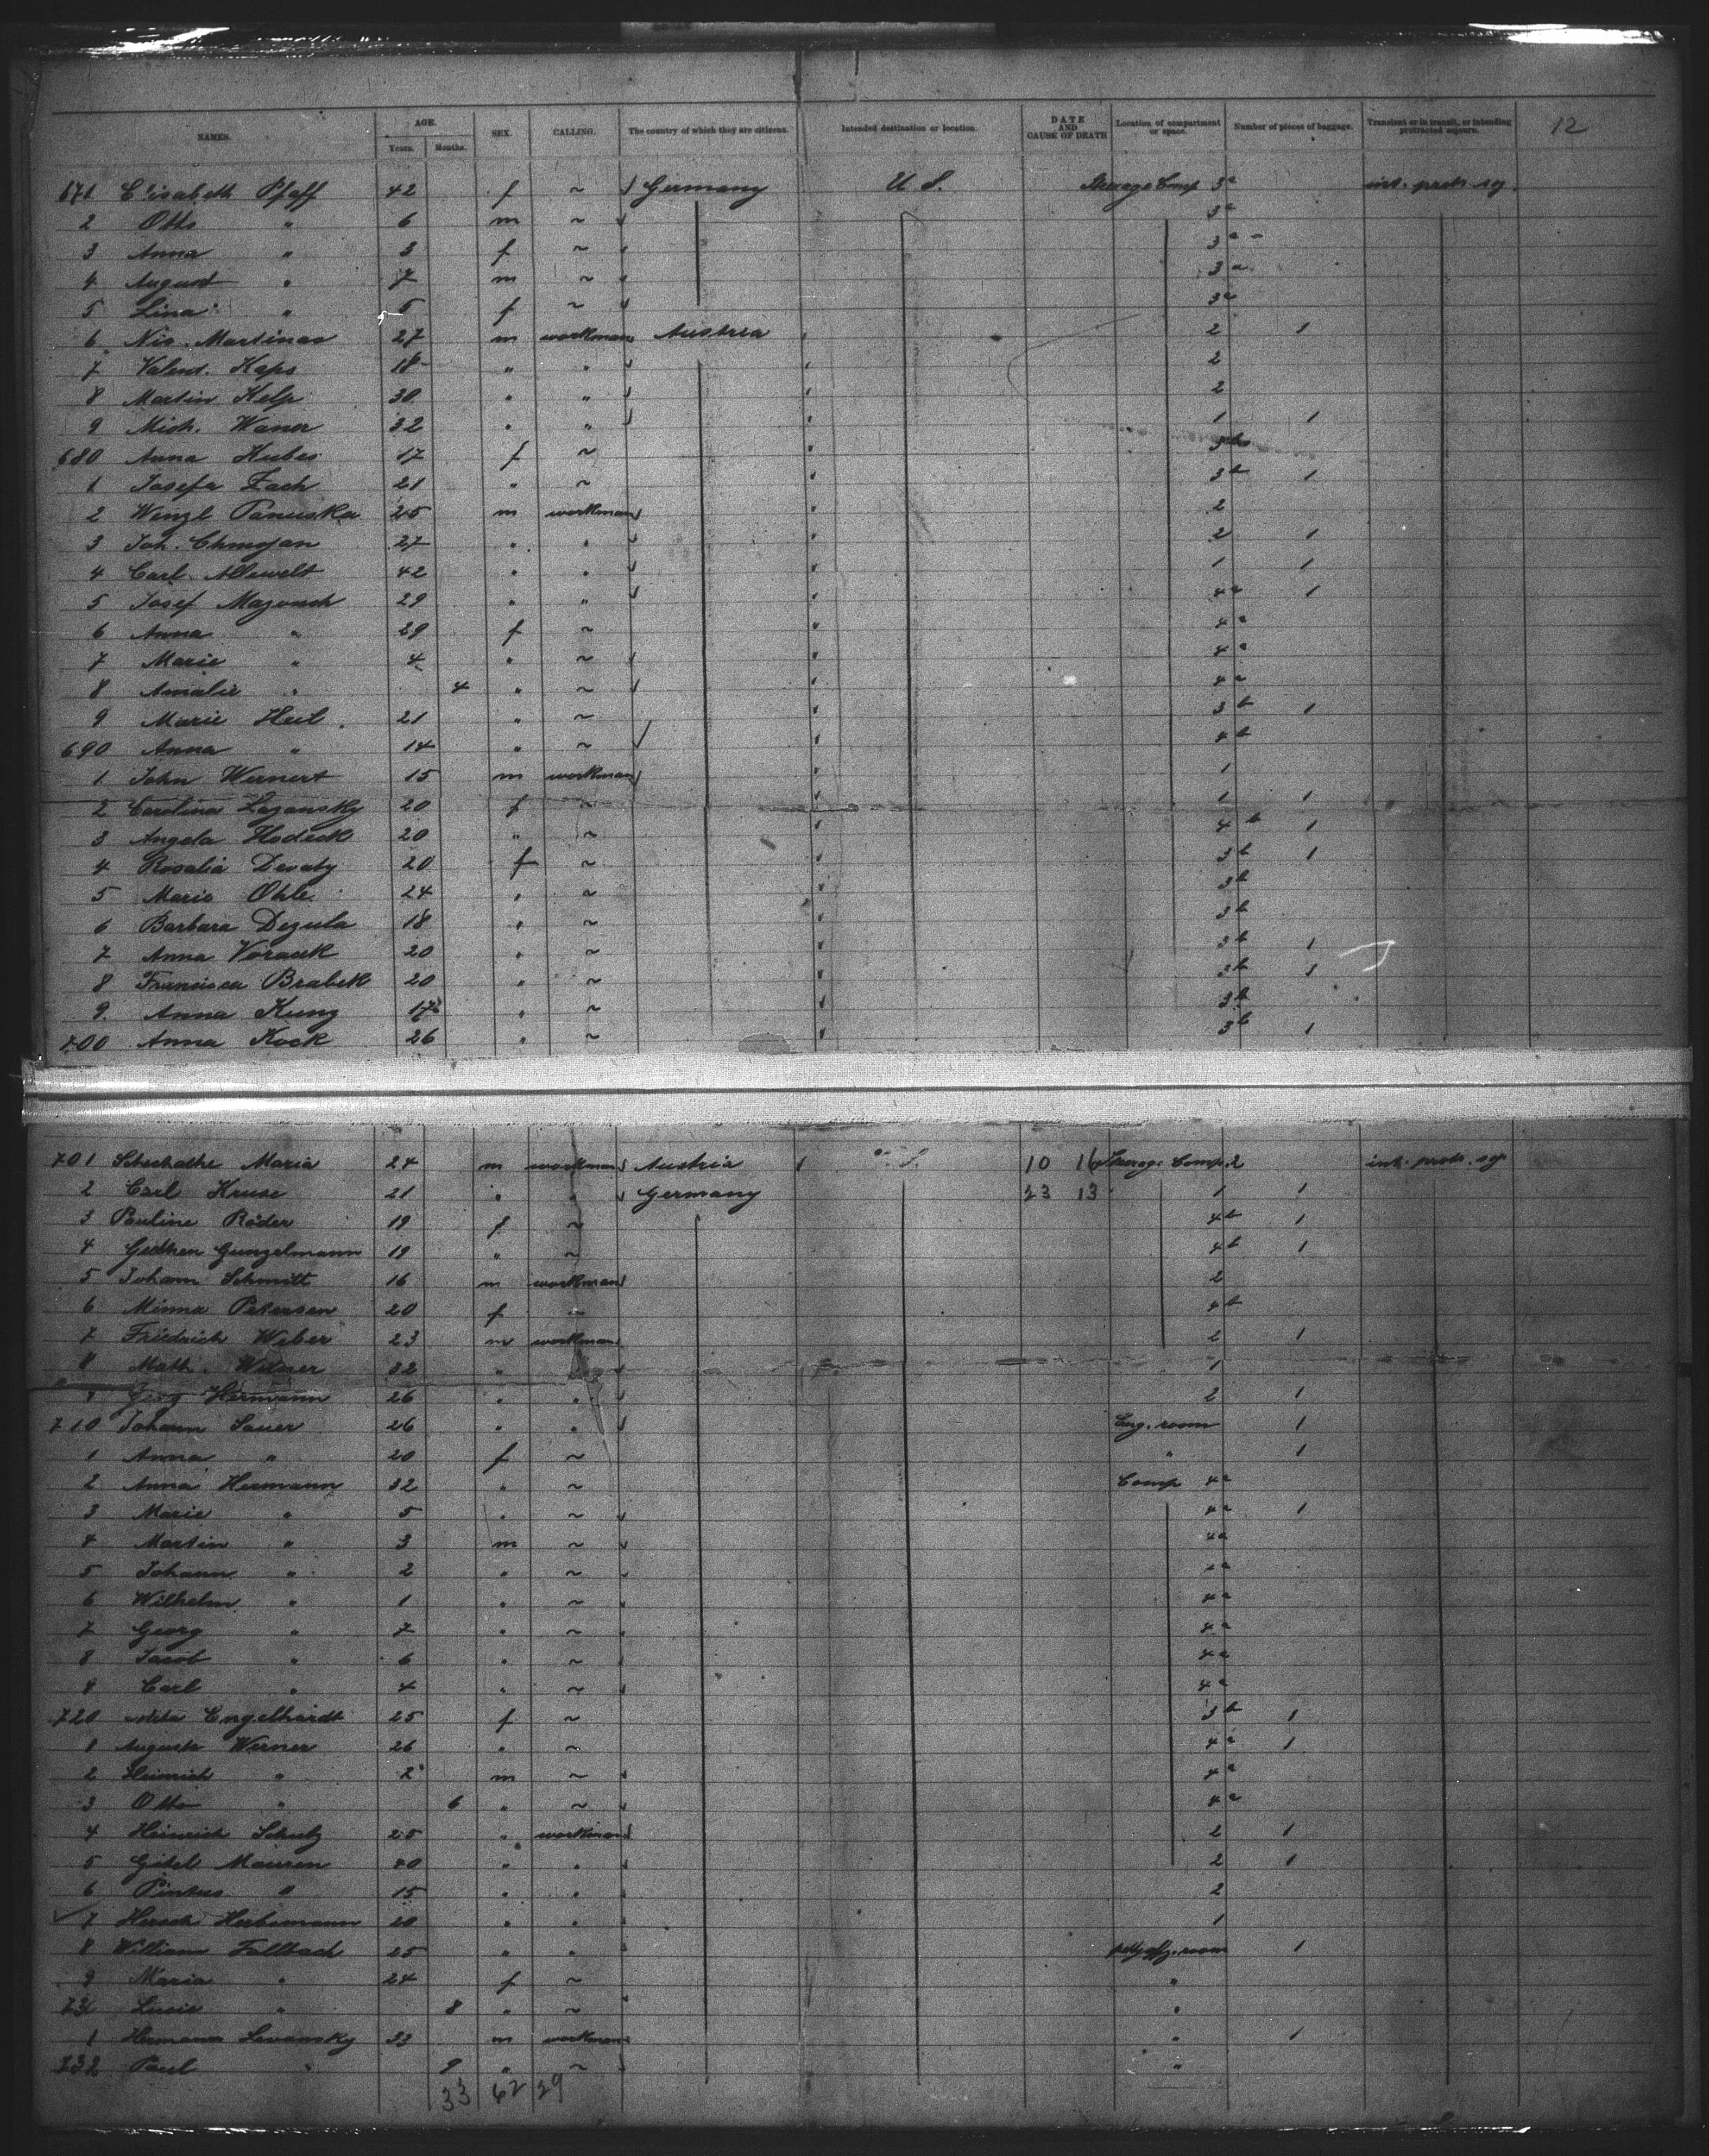 12
NAMES. AGE. Years. Months. SEX. CALLING. The country of which they are citizens. Intended destination or location. DATE AND CAUSE OF DEATH Location of compartment or space. Number of pieces of baggage. Transient or in transit, or intending protracted sojourn.
671 Elisabeth Pfaff 42 f ~ Germany U S. Steerage Comp 3a int. protr. soj.
2 Otto " 6 m ~ 3a
3 Anna " 3 f ~ 3a
4 August " 7 m ~ 3a
5 Lina " 5 f ~ 3a
6 Nic. Martinas 27 m workman Austria 2 1
7 Valent. Kaps 18 " " 2
8 Martin Kelp 30 " " 2
9 Mich. Waner 32 " " 1 1
680 Anna Kubes 17 f ~ 3b
1 Josefa Zach 21 " ~ 3b 1
2 Wenzl Panuska 25 m workman 2
3 Joh. Chmojan 27 " " 2 1
4 Carl Allewelt 42 " " 1 1
5 Josef Mazouch 29 " " 4a 1
6 Anna " 29 f ~ 4a
7 Marie " 4 " ~ 4a
8 Amalie " 4 " ~ 4a
9 Marie Heil 21 " ~ 3b 1
690 Anna " 14 " ~ 4b
1 John Wernert 15 m workman 1
2 Carolina Lazansky 20 f ~ 1 1
3 Angela Hodeck 20 " ~ 4b 1
4 Rosalia Devaty 20 f ~ 3b 1
5 Marie Ohle 24 " ~ 3b
6 Barbara Dezula 18 " ~ 3b
7 Anna Voracek 20 " ~ 3b 1
8 Francisca Brabek 20 " ~ 3b 1
9. Anna Kunz 17 " ~ 3b
700 Anna Kock 26 " ~ 3b 1
701 Maria 24 m workman Austria " S. 10 16 Steerage Comp. 2 int. protr. soj.
2 Carl Kruse 21 " " Germany 23 13 1 1
3 Pauline Röder 19 f ~ 4b 1
4 Gretchen Gunzelmann 19 " ~ 4b 1
5 Johann Schmitt 16 m workman 2
6 Minna Petersen 20 f ~ 4b
7 Friedrich Weber 23 m workman 2 1
8 Math. Witzner 32 " " 1
9 Georg Hermann 26 " " 2 1
710 Johann Sauer 26 " " Eng. room 1
1 Anna " 20 f ~ " 1
2 Anna Hermann 32 " ~ Comp 4a
3 Marie " 5 " ~ 4a 1
4 Martin " 3 m ~ 4a
5 Johann " 2 " ~ 4a
6 Wilhelm " 1 " ~ 4a
7 Georg " 7 " ~ 4a
8 Jacob " 6 " ~ 4a
9 Carl " 4 " ~ 4a
720 Meta Engelhardt 25 f ~ 3b 1
1 Auguste Werner 26 " ~ 4a 1
2 Heinrich " 2 m ~ 4a
3 Otto " 6 " ~ 4a
4 Heinrich Schulz 25 " workman 2 1
5 Gitel Mauren 40 " " 2 1
6 Pinkus " 15 " " 2
7 Hersch Herbsmann 20 " " 1
8 William Fallbach 25 " " petty off. room 1
9 Maria " 24 f ~ "
730 Lucie " 8 " ~ "
1 Hermann Levansky 33 m workman " 1
732 Paul " 9 " ~ "
33 62 29